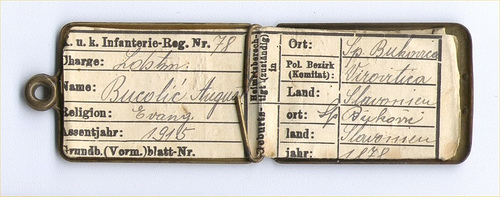 k. u. k. Infanterie-Reg. Nr. 78
Charge: Ldstm.
Name: Bucolić August
Religion: Evang.
Assentjahr: 1915
Grundb. (Vorm.) blatt-Nr.
Heimatsberech-
tigt (zuständig)
in
Ort: Sp. Bukovica
Pol. Bezirk
(Komitat): Virovitica
Land: Slavonien
Geburts-
ort: Sp.
land: Slavonien
jahr: 1878